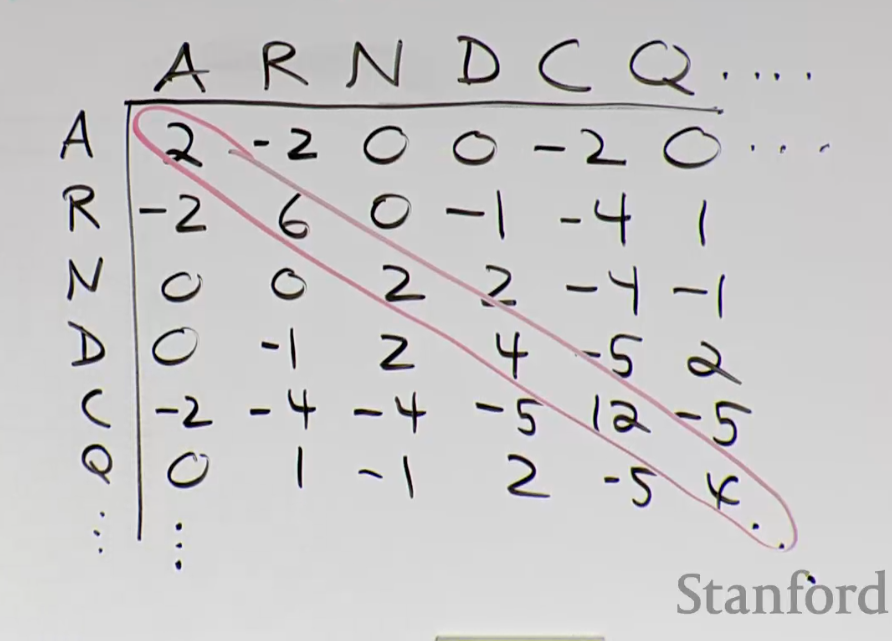 A R N D C Q ....
A 2 -2 0 0 -2 0 ...
R -2 6 0 -1 -4 1
N 0 0 2 2 -4 -1
D 0 -1 2 4 -5 2
C -2 -4 -4 -5 12 -5
Q 0 1 -1 2 -5 4
Stanford